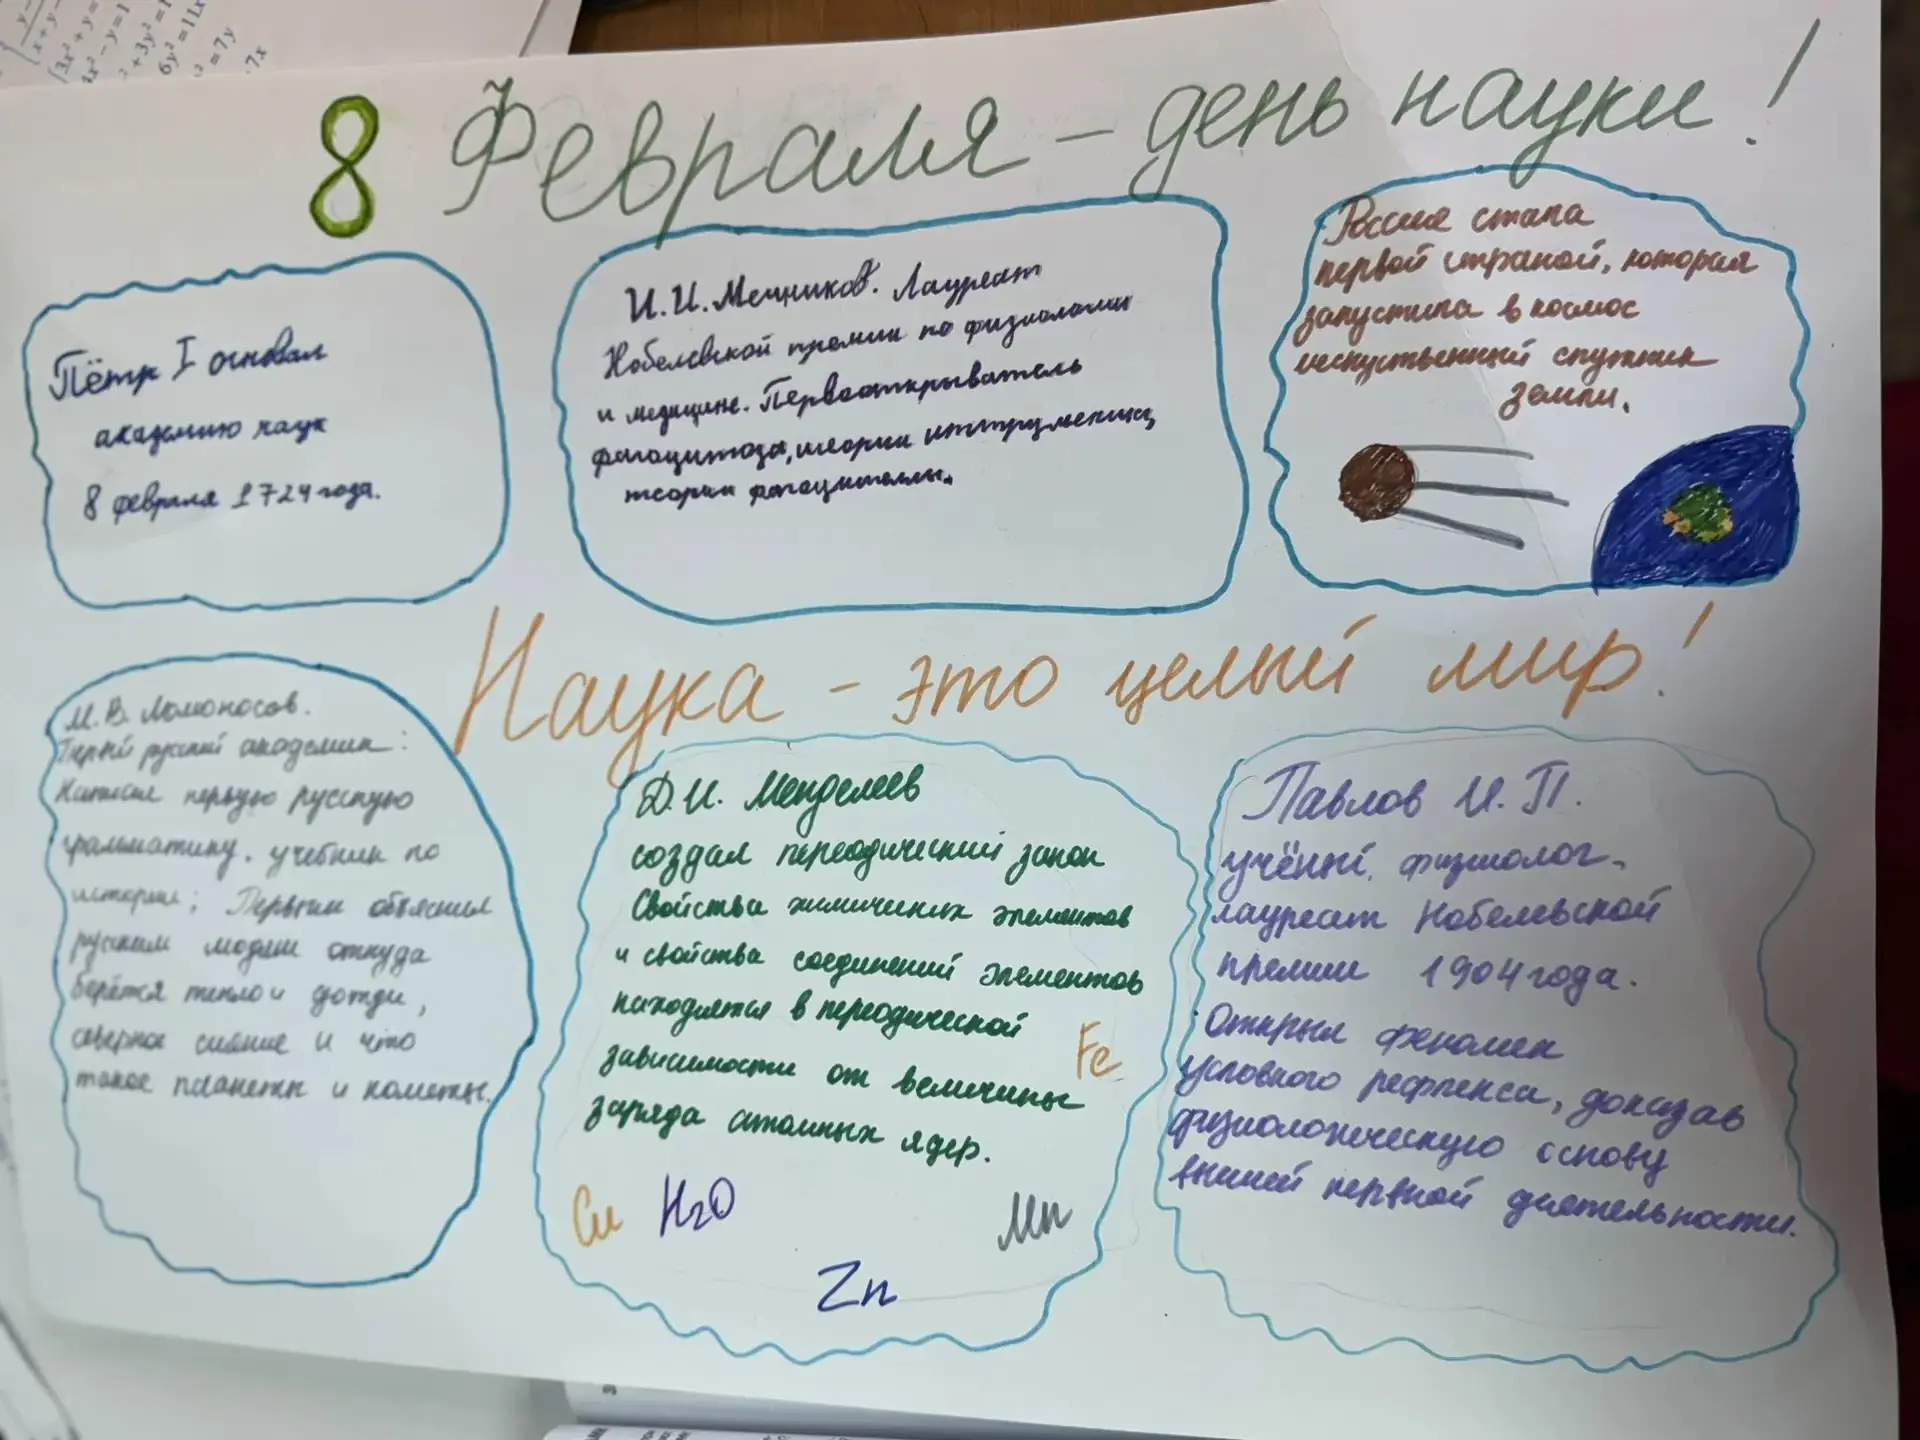 8 Февраля – день науки!
Пётр I основал
академию наук
8 февраля 1724 года.
И.И. Мечников. Лауреат
Нобелевской премии по физиологии
и медицине. Первооткрыватель
фагоцитоза, теории
теории фагоцителлы.
Россия стала
первой страной, которая
запустила в космос
искуственный спутник
земли.
Наука – это целый мир!
М.В. Ломоносов.
Первый русский академик:
Написал первую русскую
грамматику, учебник по
истории; Первым объяснил
русским людям откуда
берётся тепло и дожди,
северное сияние и что
такое планеты и кометы.
Д.И. Менделеев
создал переодический закон
Свойства химичиских элементов
и свойства соединений элементов
находятся в переодической
зависимости от величины
заряда атомных ядер.
Fe
Cu H2O
Mn
Zn
Павлов И.П.
учёный, физиолог,
лауреат Нобелевской
премии 1904 года.
Открыл феномен
условного рефлекса, доказав
физиологическую основу
высшей нервной деятельности.